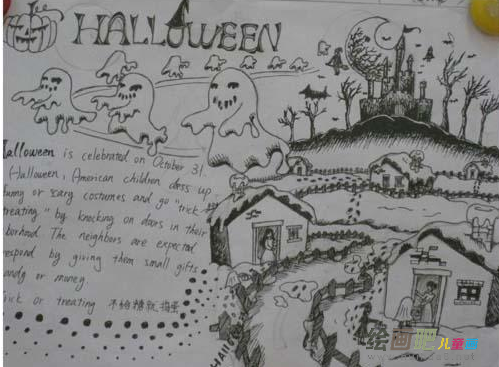 HALLOWEEN
Halloween is celebrated on October 31.
Halloween, American children dress up
funny or scary costumes and go "trick
treating" by knocking on doors in their
borhood. The neighbors are expected
respond by giving them small gifts
andy or money.
rick or treating 不给糖就捣蛋
绘画吧儿童画